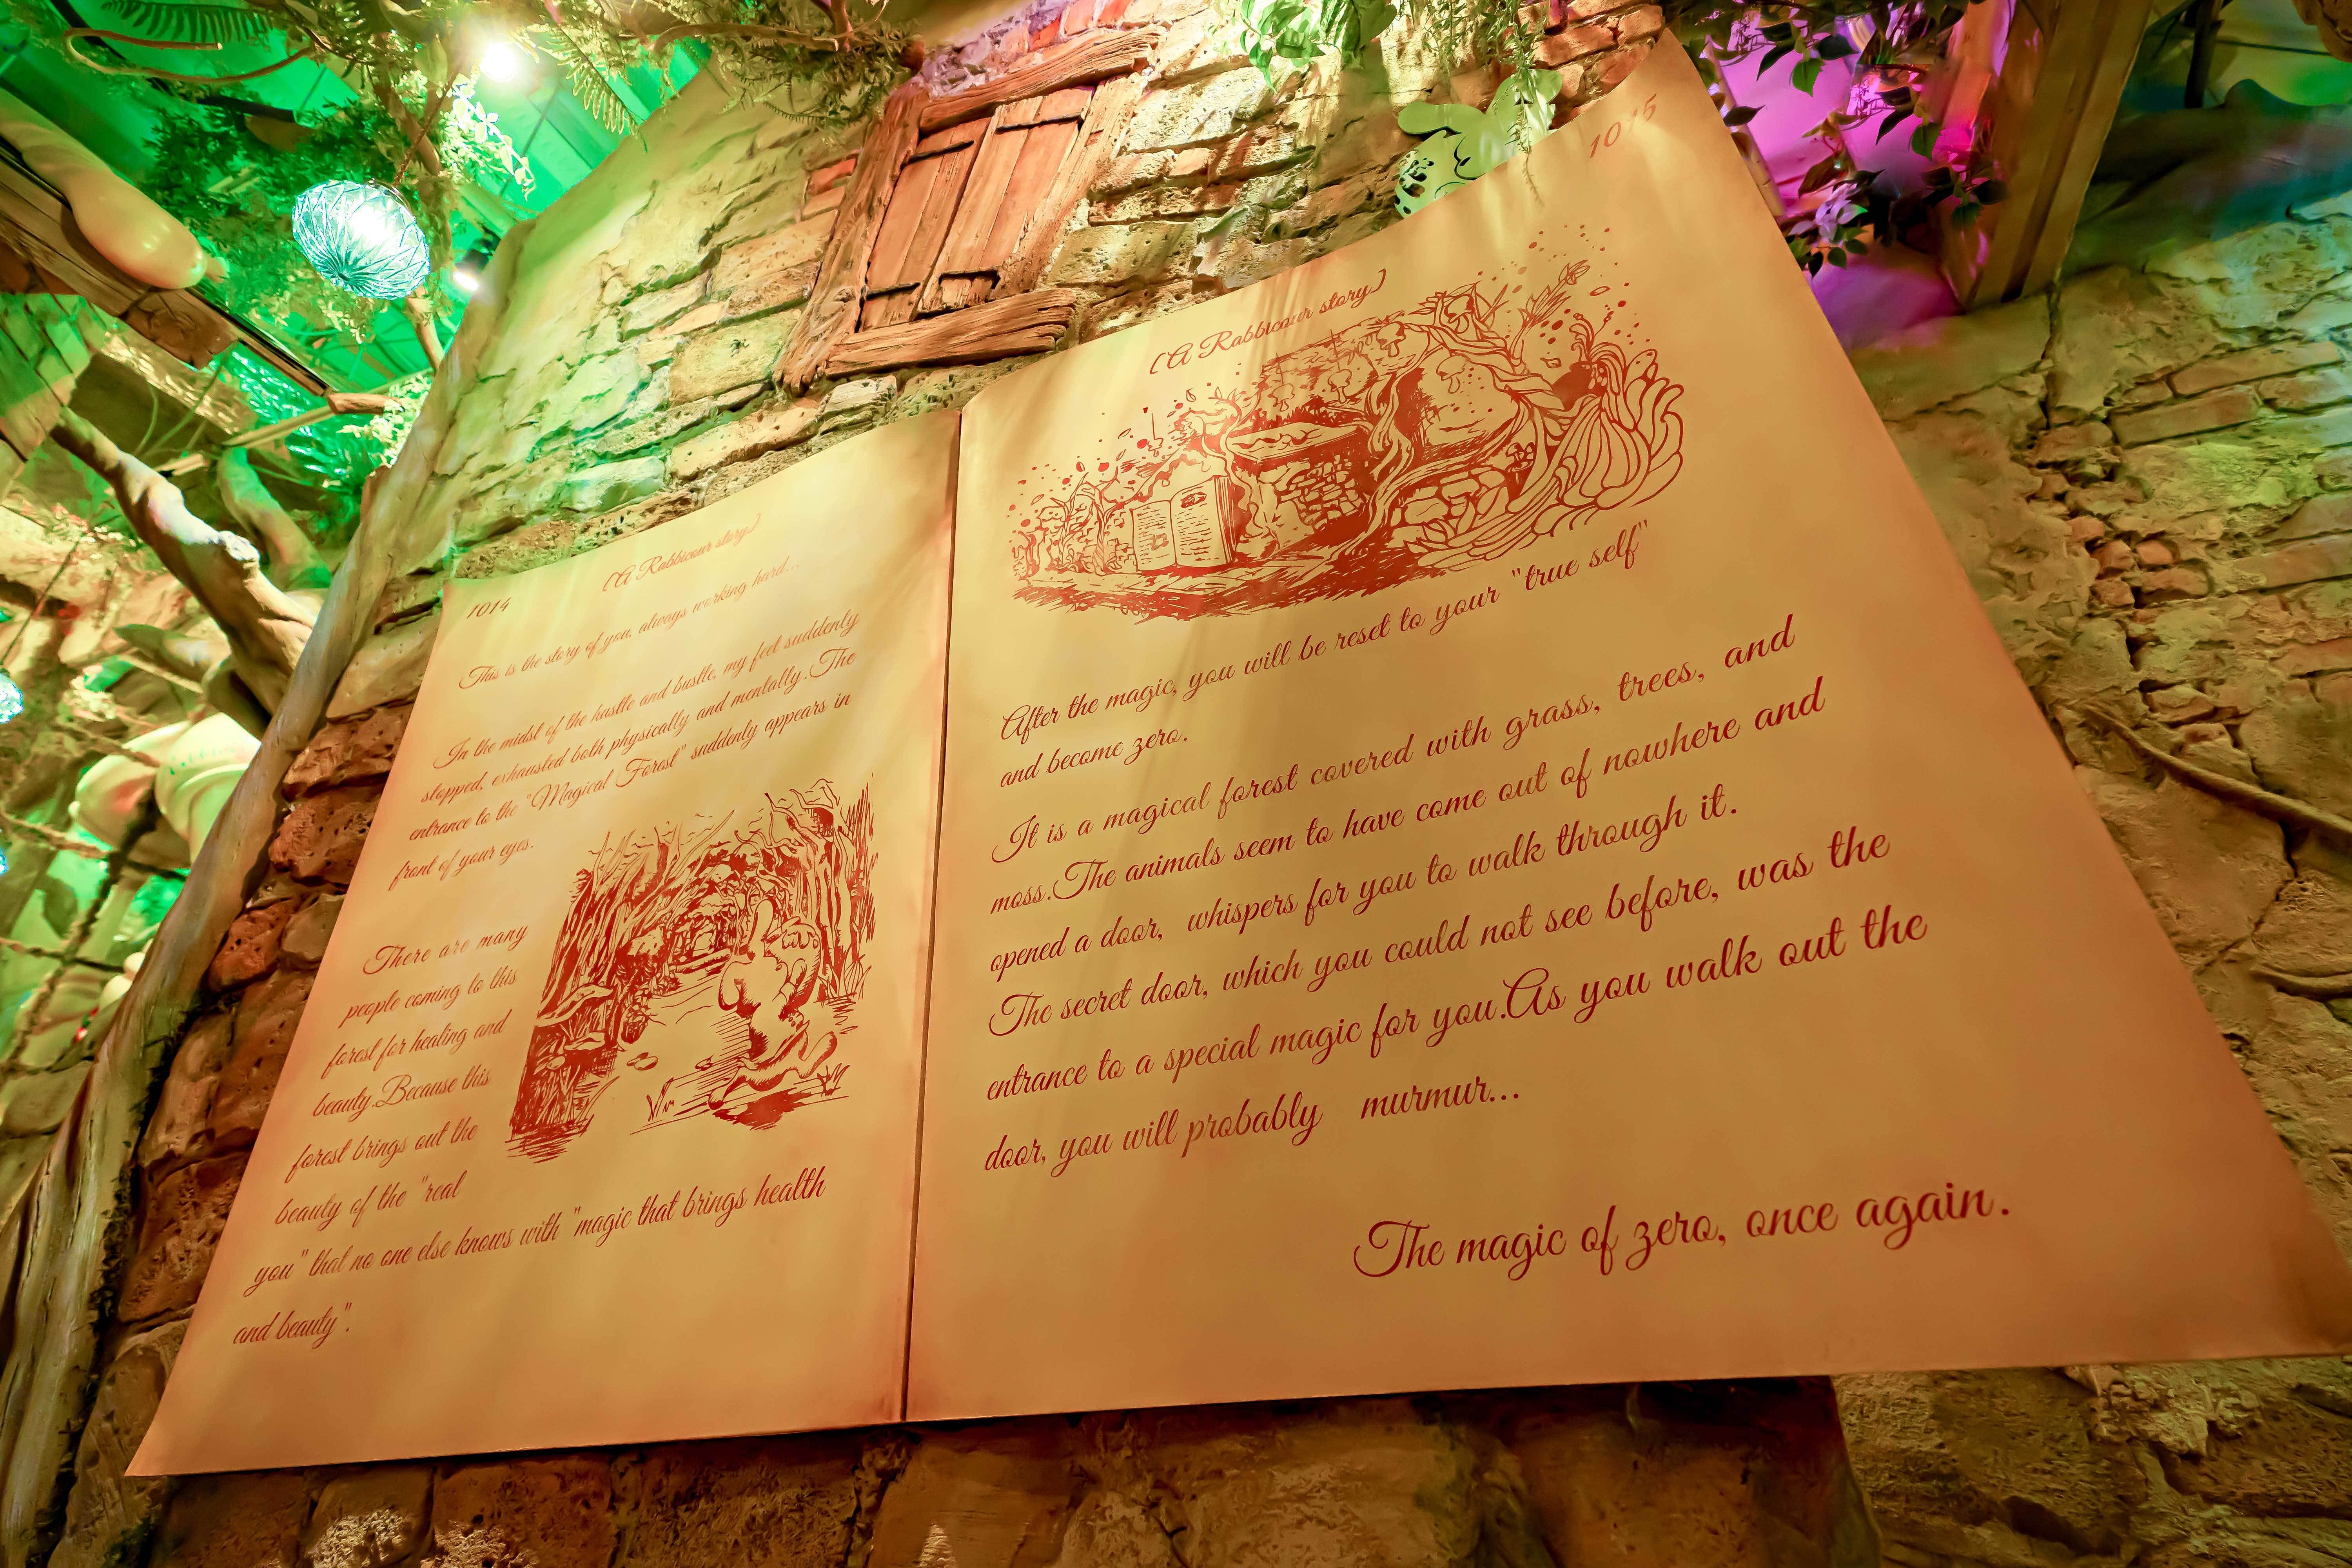 1014
[A Rabbicour story]
This is the story of you, always working hard...
In the midst of the hustle and bustle, my feet suddenly
stopped, exhausted both physically and mentally.The
entrance to the "Magical Forest" suddenly appears in
front of your eyes.
There are many
people coming to this
forest for healing and
beauty.Because this
forest brings out the
beauty of the "real
you" that no one else knows with "magic that brings health
and beauty".
1015
[A Rabbicour story]
After the magic, you will be reset to your "true self"
and become zero.
It is a magical forest covered with grass, trees, and
moss.The animals seem to have come out of nowhere and
opened a door, whispers for you to walk through it.
The secret door, which you could not see before, was the
entrance to a special magic for you.As you walk out the
door, you will probably murmur...
The magic of zero, once again.